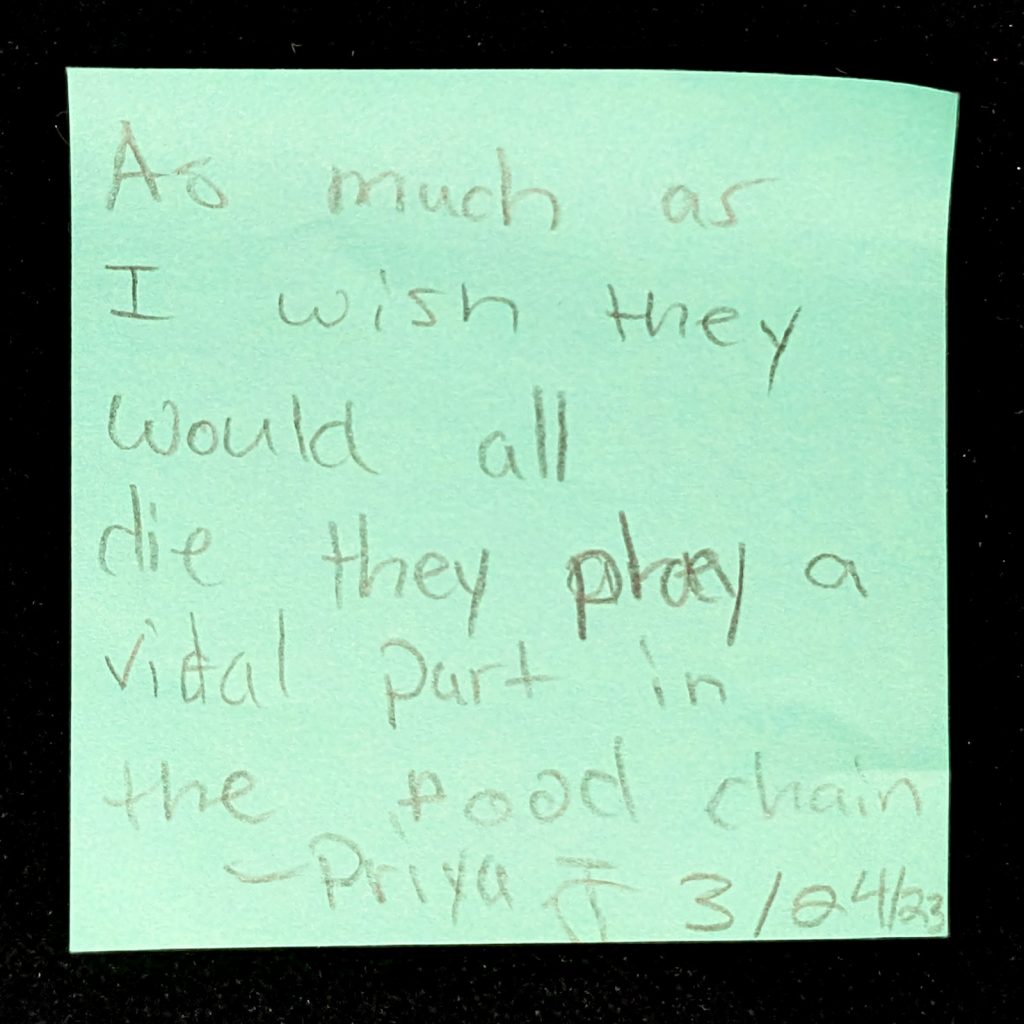 As much as
I wish they
would all
die they play a
vital part in
the food chain
~Priya J 3/24/23